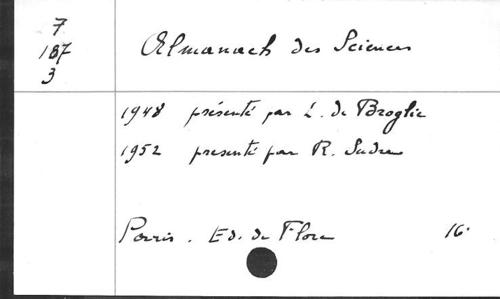 7
187
3
Almanach des Sciences
1948 présenté par L. de Broglie
1952 presenté par R. Sudre
Paris. Ed. de Flore 16°